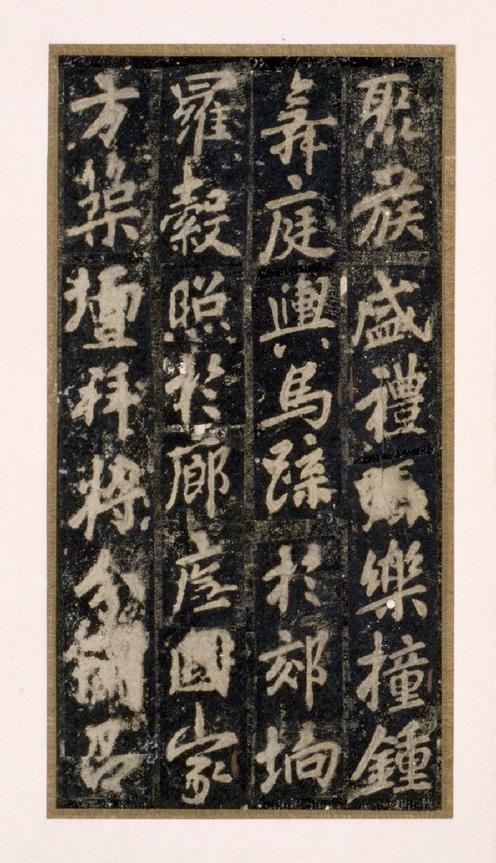 聚族盛禮樂撞鍾
舞庭輿馬於郊坰
羅縠照於廊國家
方築壇拜將分閫